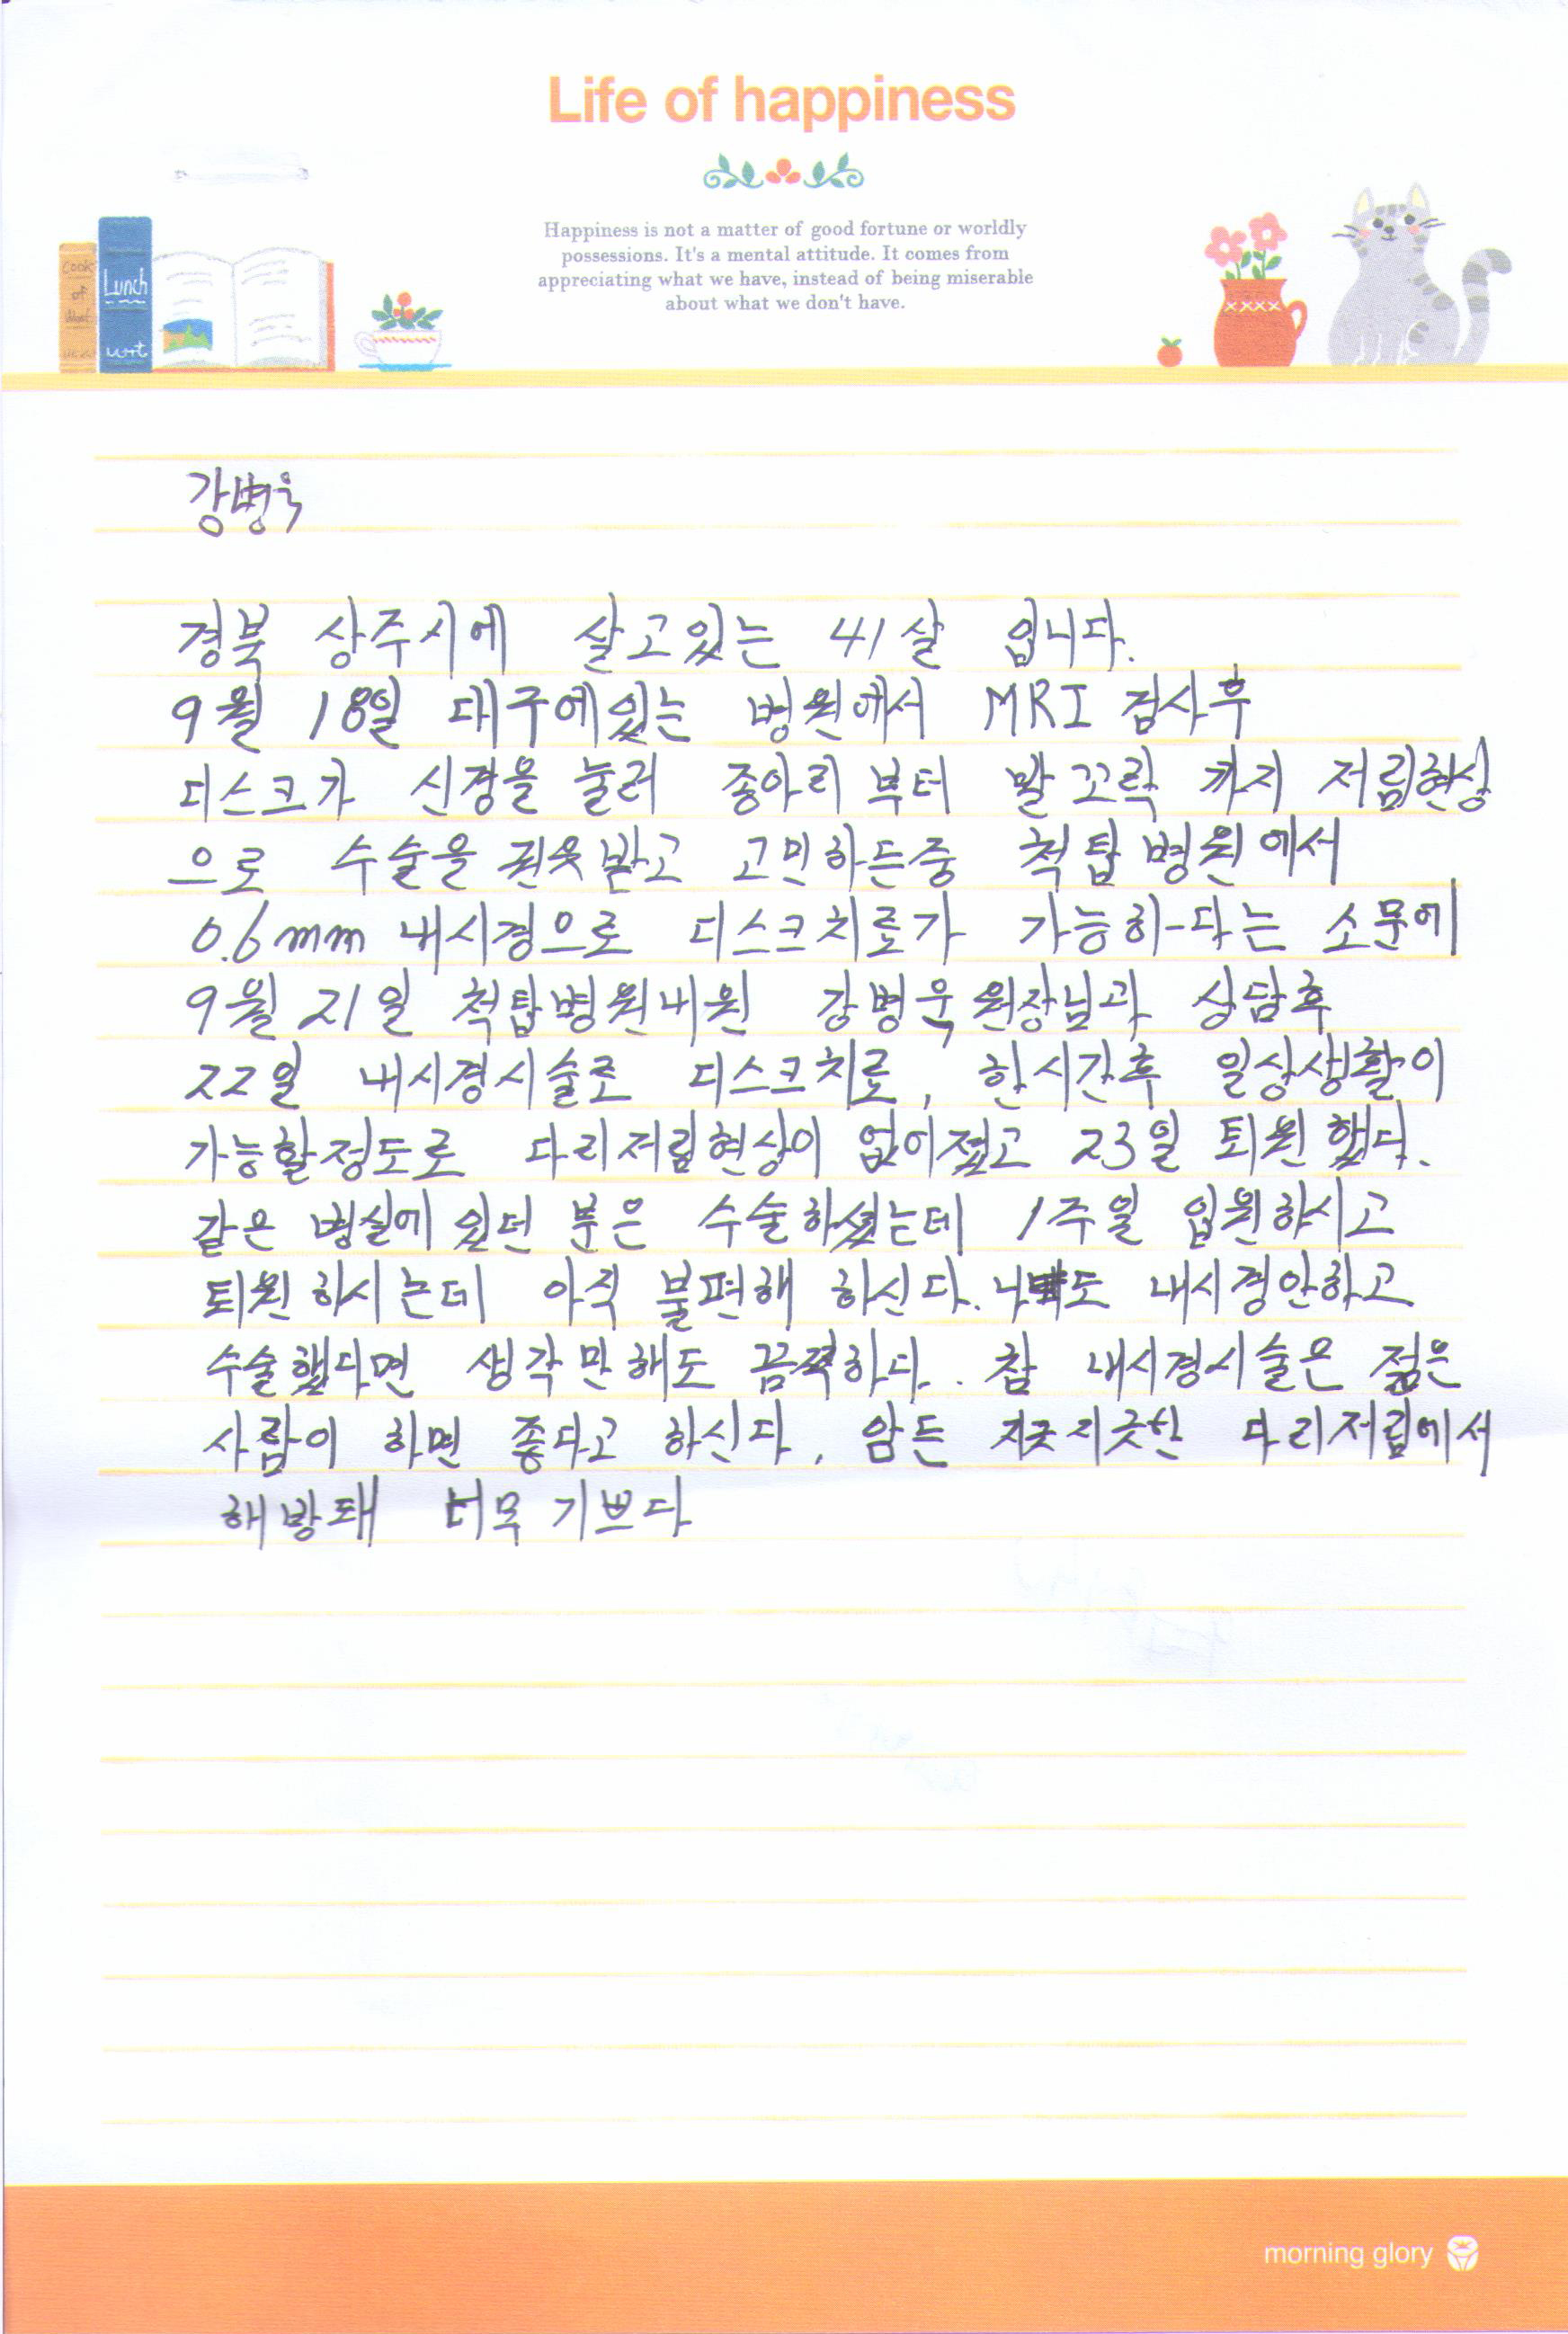 Life of happiness
Happiness is not a matter of good fortune or worldly
possessions. It's a mental attitude. It comes from
appreciating what we have, instead of being miserable
about what we don't have.
Cook
of
Lunch
강병욱
경북 상주시에 살고있는 41살 입니다.
9월 18일 대구에있는 병원에서 MRI 검사후
디스크가 신경을 눌러 종아리 부터 발꼬락 까지 저림현상
으로 수술을 권유받고 고민하든중 척탑병원에서
0.6mm 내시경으로 디스크치료가 가능하다는 소문에
9월 21일 척탑병원내원 강병욱 원장님과 상담후
22일 내시경시술로 디스크치료, 한시간후 일상생활이
가능할정도로 다리저림현상이 없어졌고 23일 퇴원했다.
같은 병실에 있던 분은 수술하셨는데 1주일 입원하시고
퇴원하시는데 아직 불편해 하신다. 나도 내시경안하고
수술했다면 생각만해도 끔찍하다. 참 내시경시술은 젊은
사람이 하면 좋다고 하신다, 암튼 지긋지긋한 다리저림에서
해방돼 너무 기쁘다
morning glory